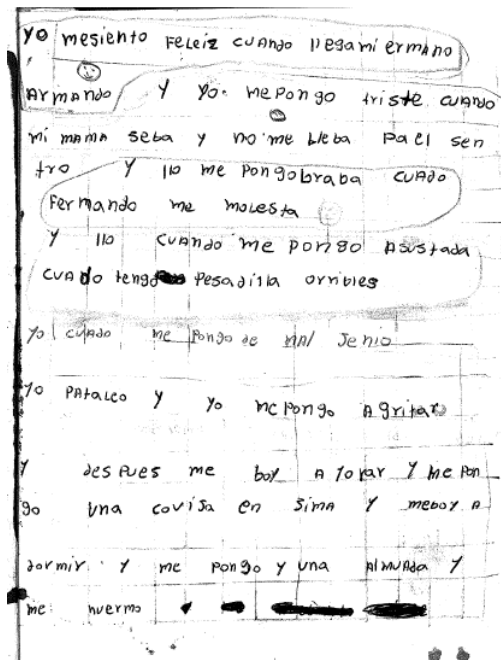 yo mesiento Feleiz cuando llegami ermano
Armando y yo. mepongo triste cuando
mi mama seba y no me lleba pa el sen
tro y llo me Pongobraba cuado
Fermando me molesta
y llo cuando me pongo Asustada
cuado tengo Pesadilla orribles
yo cuado me Pongo de mal Jenio
yo PAtaleo y yo me Pongo A gritar
y despues me boy A lorar y me Pon
go una covija en sima y meboy A
dormir. y me pongo y una Almuada y
me. nuermo